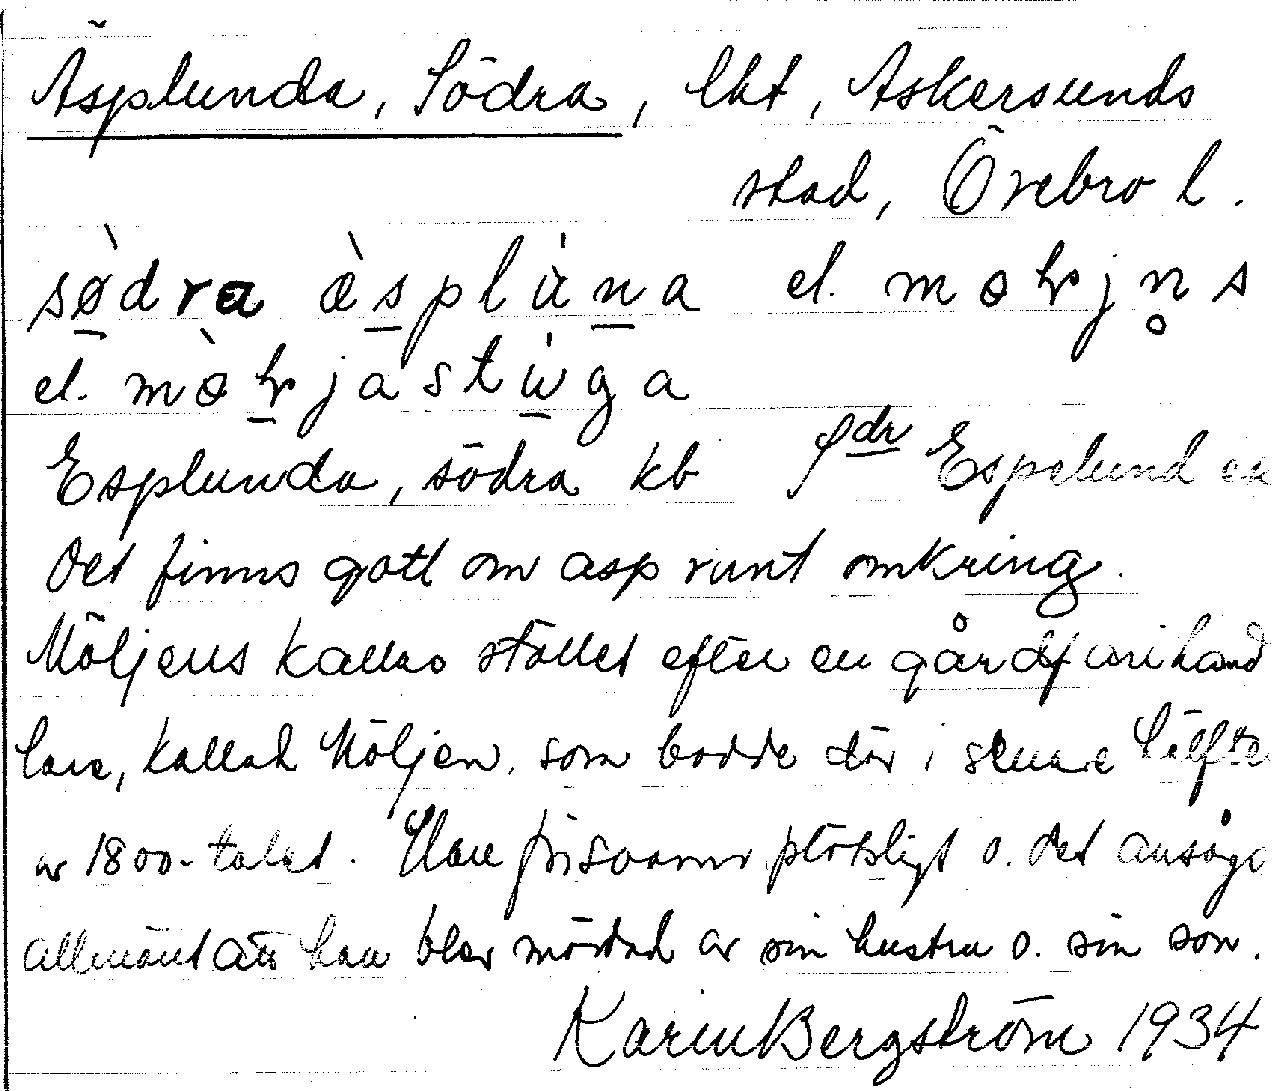 Äsplunda, Södra, lht, Askersunds
stad, Örebro l.
sø̀dra æ̀splùna el. møɽjn̥s
el. mø̀ɽjastùga
Esplunda, södra kb Sdr Espelund ek
Det finns gott om asp runt omkring.
Möljens kallas stället efter en gårdfarihand
lare, kallad Möljen, som bodde där i senare hälften
av 1800-talet. Han försvann plötsligt o. det ansågs
allmänt att han blev mördad av sin hustru o. sin son.
Karin Bergström 1934